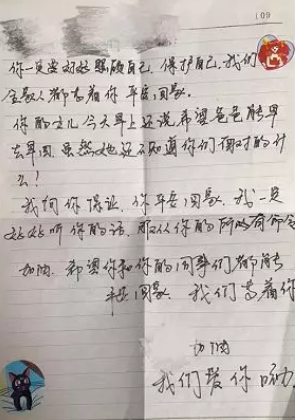 109
你一定要好好照顾自己,保护自己,我们
全家人都等着你平安回家.
你的女儿今天早上还说希望爸爸能早
去早回,虽然她还不知道你们面对的什
么!
我向你保证,你平安回家,我一定
好好听你的话,服从你的所有命令
加油,希望你和你的同事们都能
平安回家.我们等着你
加油
我们爱你呦